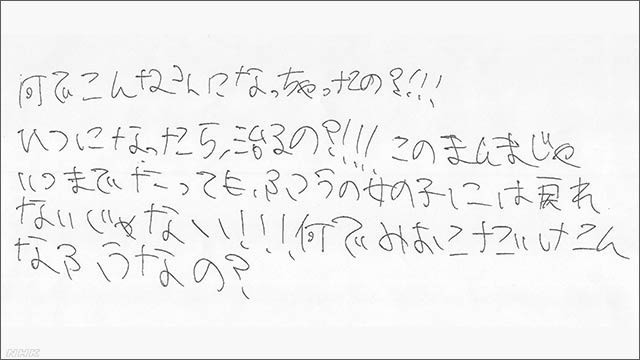 何でこんなふうになっちゃったの?!!!
いつになったら、治るの?!!! このまんまじゃ
いつまでたっても、ふつうの女の子には戻れ
ないじゃない!!!何でみおこだけこん
なふうなの?
NHK